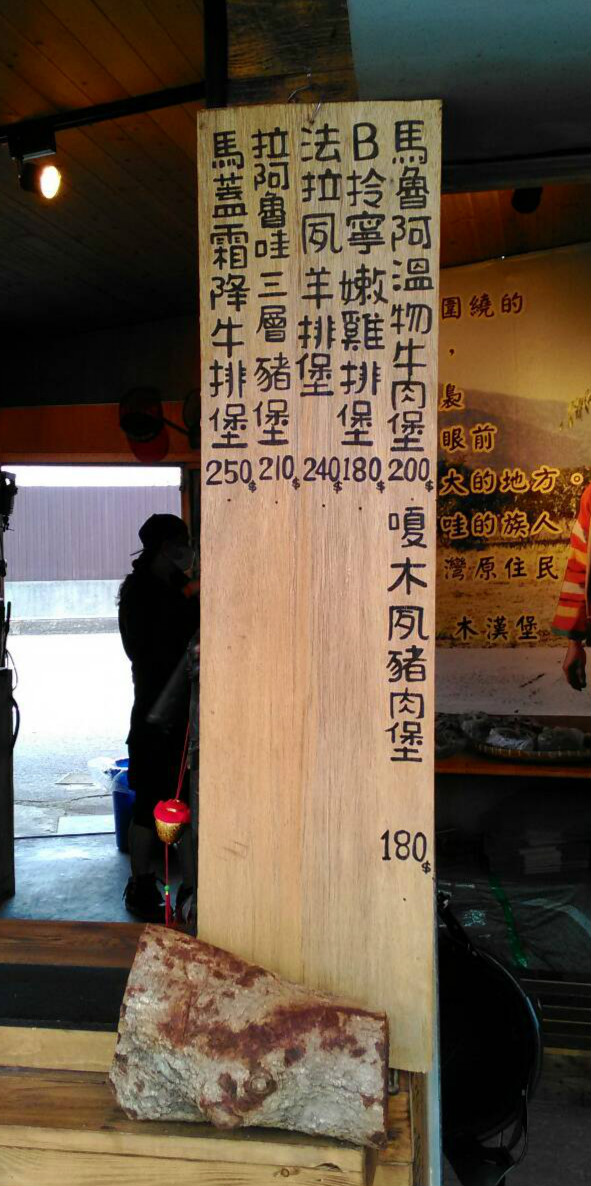 馬魯阿溫物牛肉堡
200$
B拎寧嫩雞排堡
180$
法拉夙羊排堡
240$
拉阿魯哇三層豬堡
210$
馬蓋霜降牛排堡
250$
嗄木夙豬肉堡
180$
圍繞的
，
裊
眼前
大的地方。
哇的族人
灣原住民
木漢堡